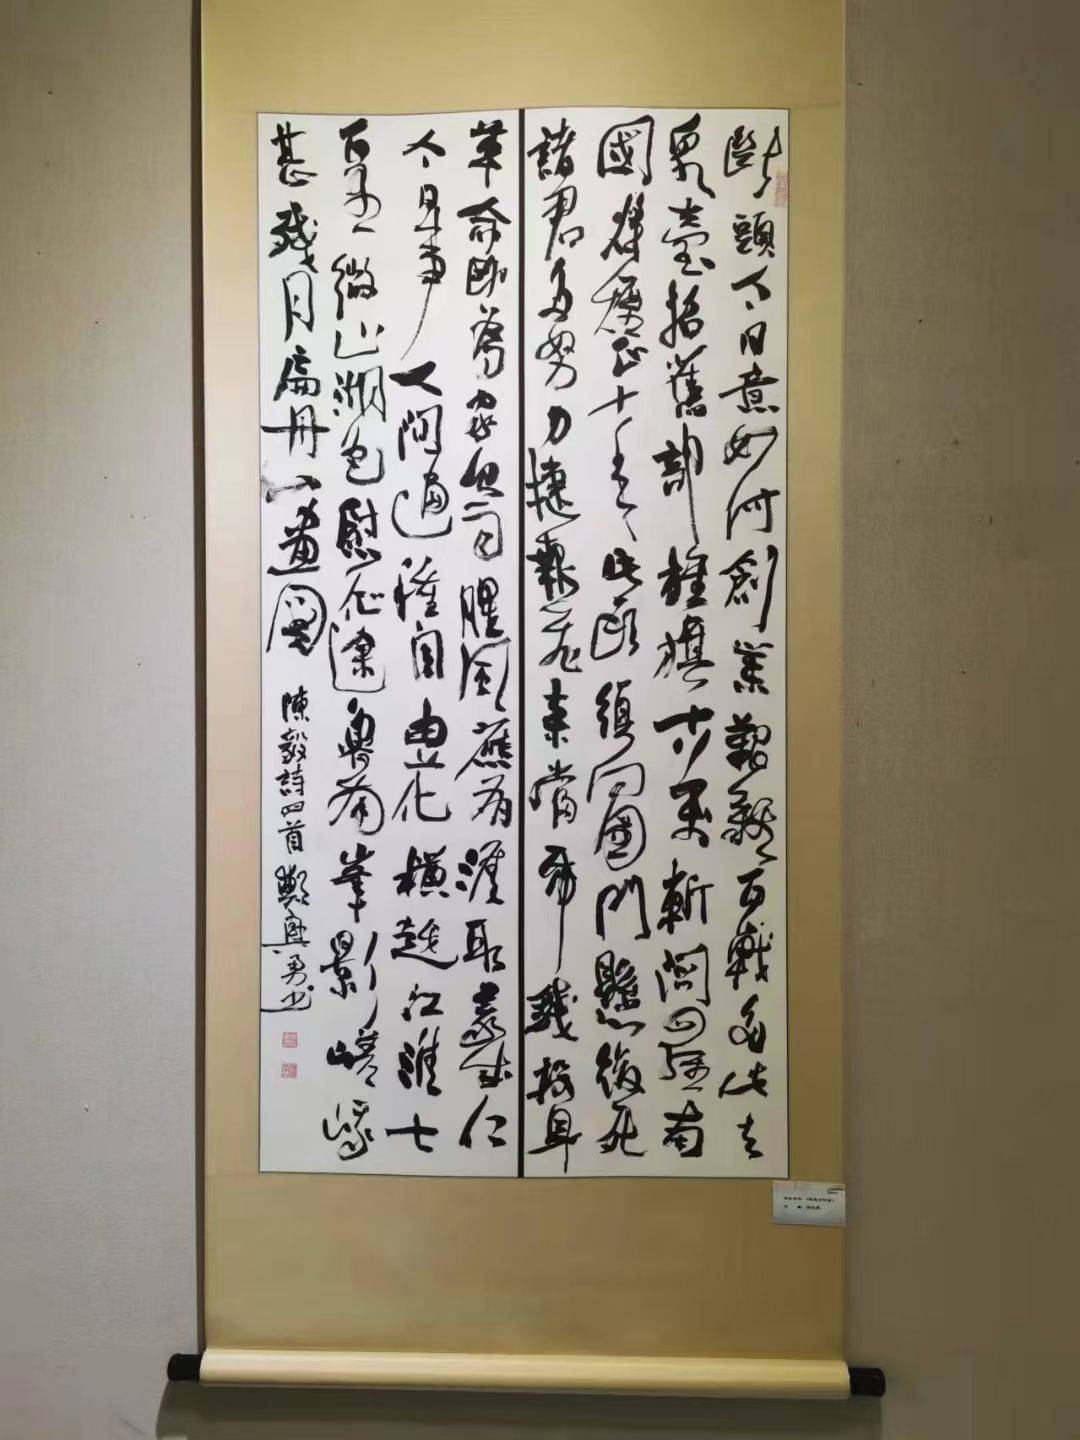 斷頭今日意如何創業艱難百戰多此去
泉臺招舊部旌旗十萬斬閻羅南
國烽煙正十年此頭須向國門懸後死
諸君多努力捷報飛來當紙錢投身
革命即為家血雨腥風應有涯取義成仁
今日事人間遍種自由花橫越江淮七
百里微山湖色慰征途魯南峯影嵯峨
甚殘月扁舟入畫圖 陳毅詩四首 鄭興勇書